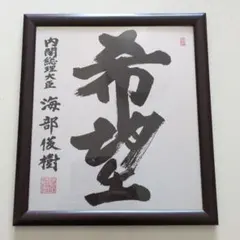 希望
内閣総理大臣 海部俊樹